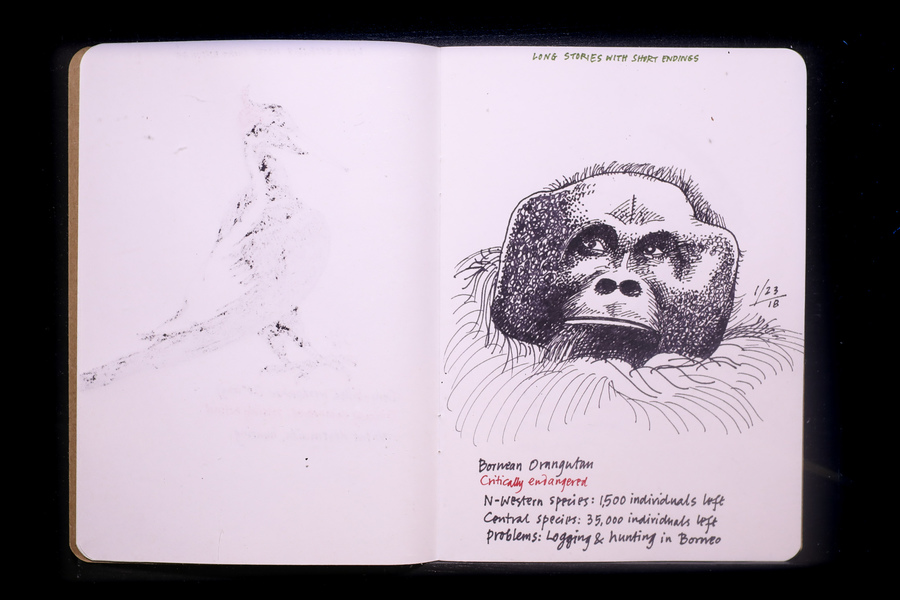 LONG STORIES WITH SHORT ENDINGS
1/23
18
Bornean Orangutan
Critically endangered
N-Western species: 1,500 individuals left
Central species: 35,000 individuals left
Problems: Logging & hunting in Borneo